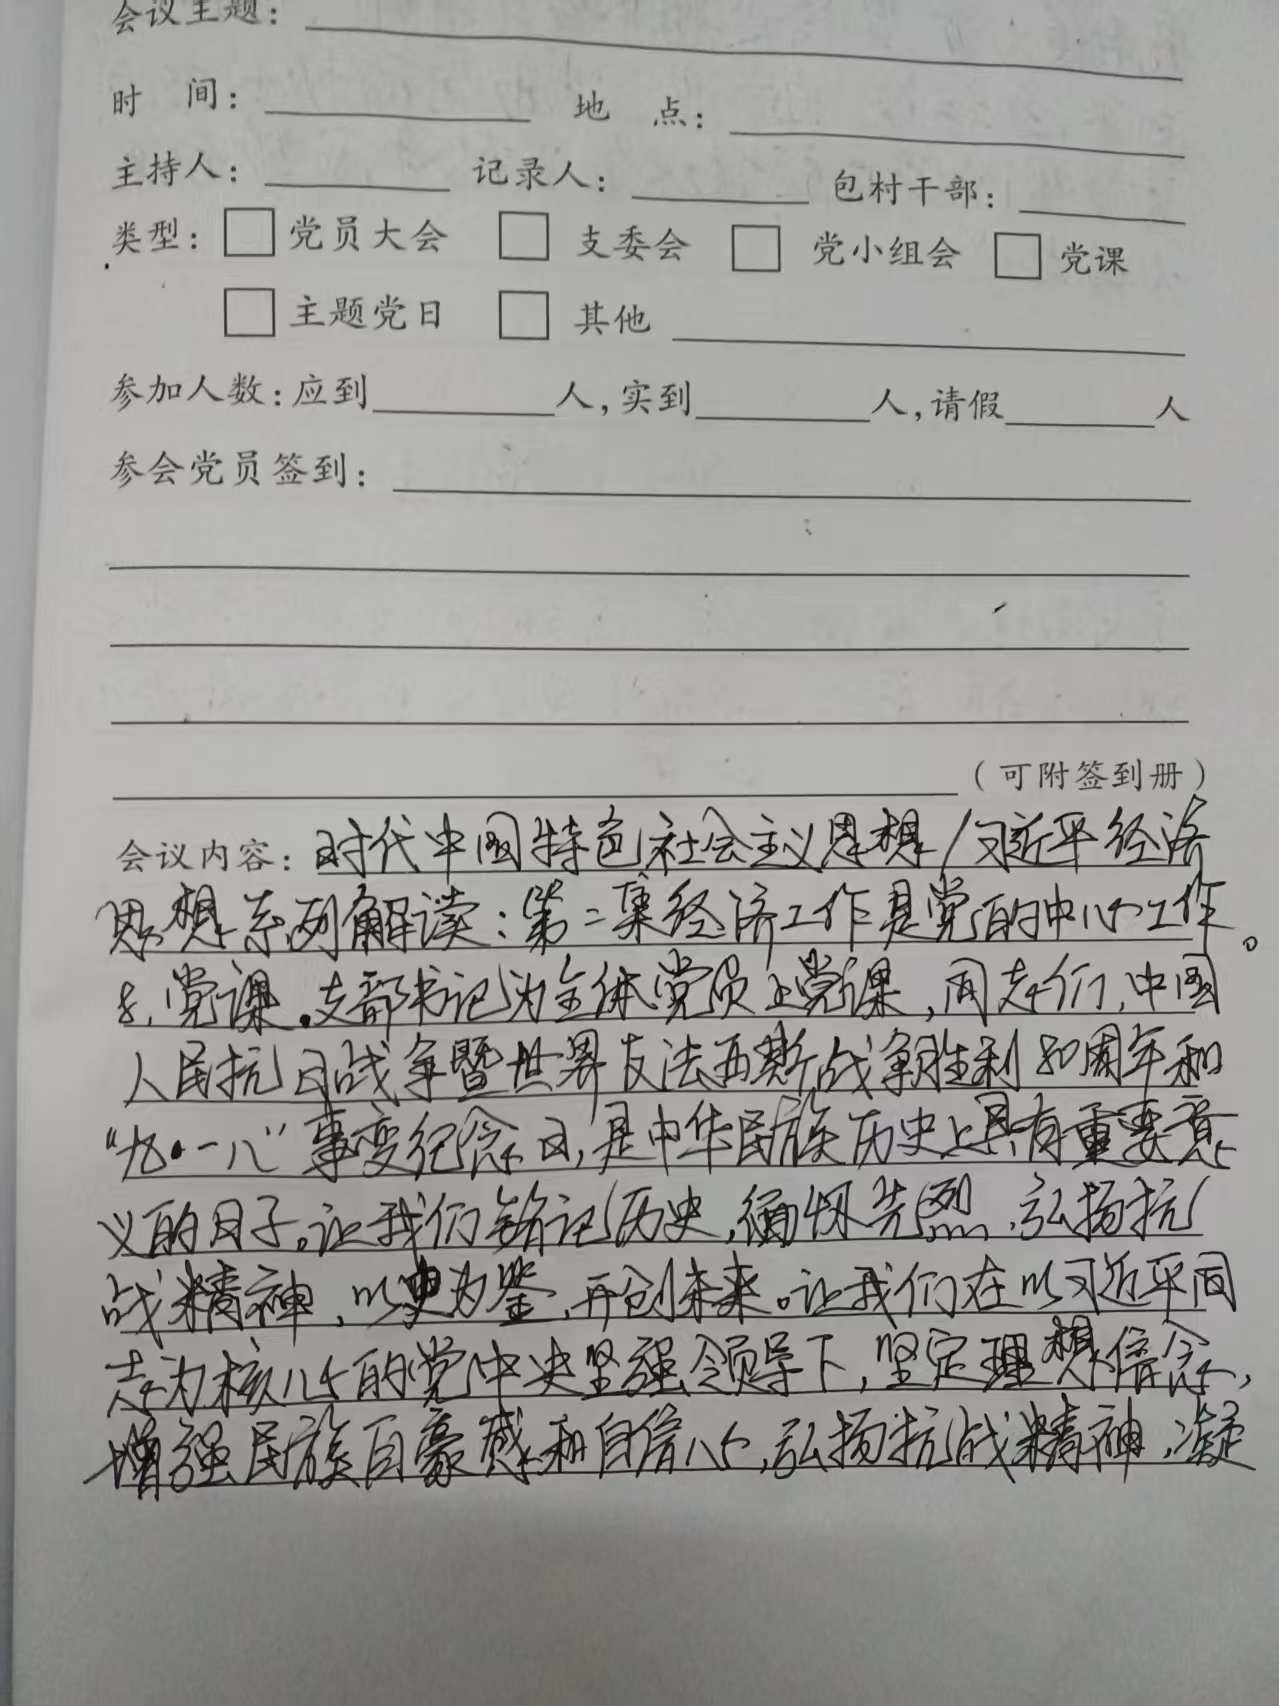 会议主题：
时 间： 地 点：
主持人： 记录人： 包村干部：
类型： 党员大会 支委会 党小组会 党课
主题党日 其他
参加人数：应到 人，实到 人，请假 人
参会党员签到：
（可附签到册）
会议内容：时代中国特色社会主义思想/习近平经济
思想系列解读：第二集经济工作是党的中心工作。
8、党课。支部书记为全体党员上党课，同志们，中国
人民抗日战争暨世界反法西斯战争胜利80周年和
“九·一八”事变纪念日，是中华民族历史上具有重要意
义的日子。让我们铭记历史，缅怀先烈，弘扬抗
战精神，以史为鉴，再创未来。让我们在以习近平同
志为核心的党中央坚强领导下，坚定理想信念，
增强民族自豪感和自信心，弘扬抗战精神，凝